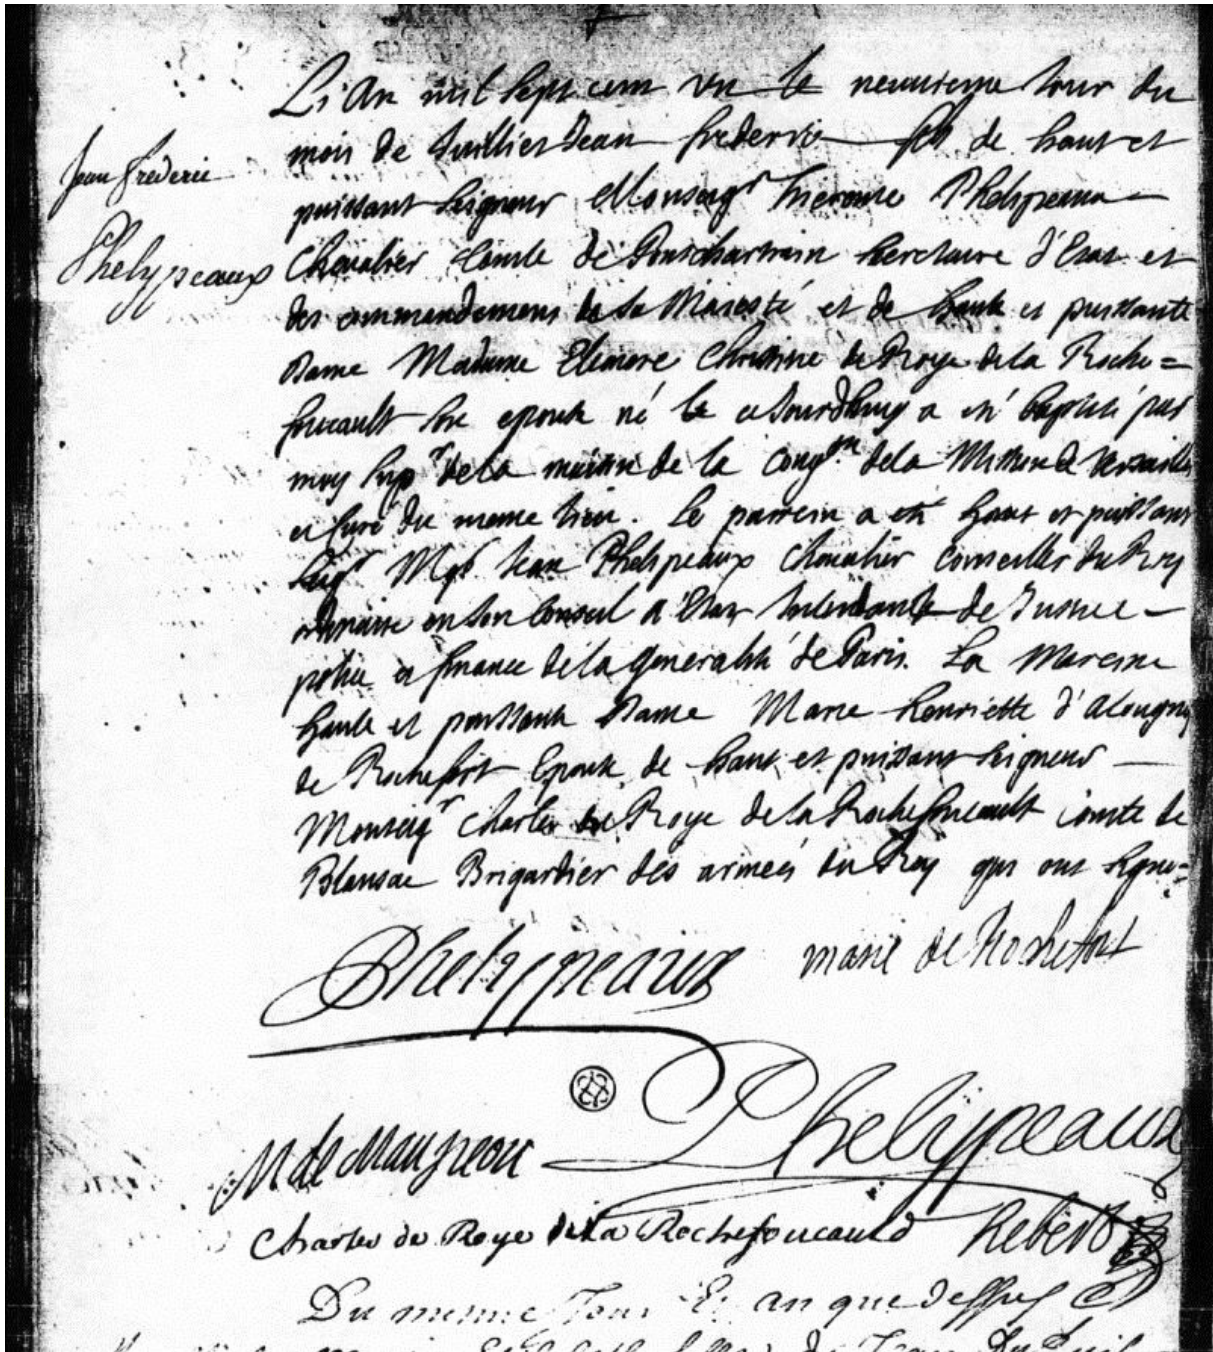 L'An mil sept cent un le neuvieme Jour du
Jean frederic
mois de Juillet Jean frederic fils de haut et
puissant Seigneur Monseigr hierome Phelypeaux
Phelypeaux
Chevalier Comte de Pontchartrain secretaire d'Estat et
des commandemens de sa Majesté et de haute et puissante
Dame Madame Eleonore Christine de Roye de la Roche=
foucault son epouse né le et baptisé par
moy supr de la maison de la congon de la Mission de Versailles
et Curé du meme lieu. Le parrein a eté haut et puissant
Seigr Mgr Jean Phelypeaux Chevalier Conseiller du Roy
ordinaire en son Conseil d'Estat Intendant de Justice
police et finance de la generalité de Paris. La Mareine
haute et puissante Dame Marie henriette d'Alougny
de Rochefort Epouse de haut et puissant seigneur
Monseigr Charles de Roye de la Rochefoucault comte de
Blansac Brigardier des armées du Roy qui ont signé=
Phelypeaux marie de Rochefort
Phelypeaux
M de Maupeou
Charles de Roye de La Rochefoucauld hebert
Du meme Jour Et an que dessus